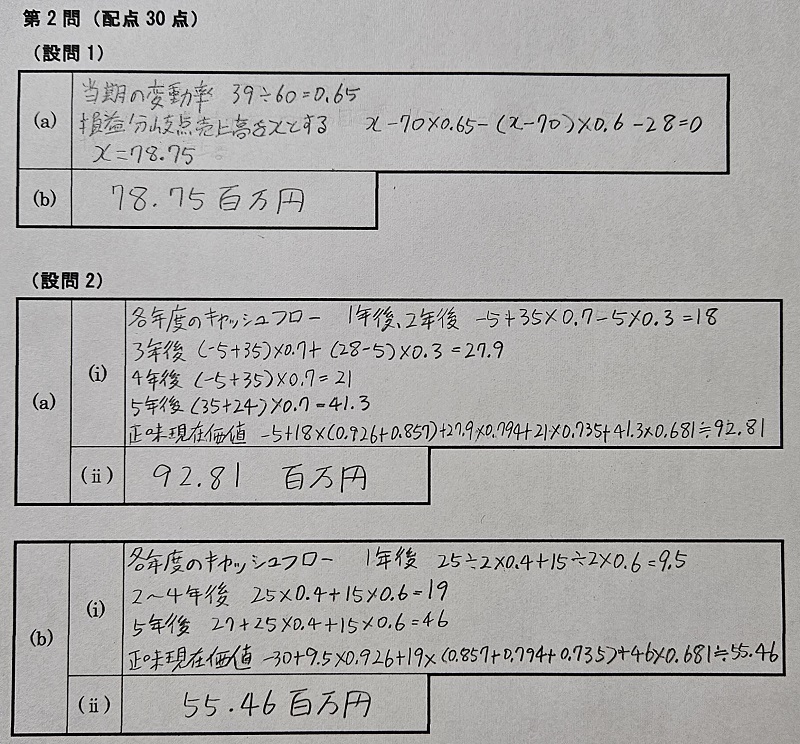 第2問(配点30点)
(設問1)
(a)
当期の変動率 39÷60=0.65
損益分岐点売上高をxとする x-70×0.65-(x-70)×0.6-28=0
x=78.75
(b)
78.75百万円
(設問2)
(a)
(i)
各年度のキャッシュフロー 1年後、2年後 -5+35×0.7-5×0.3=18
3年後 (-5+35)×0.7+(28-5)×0.3=27.9
4年後 (-5+35)×0.7=21
5年後 (35+24)×0.7=41.3
正味現在価値 -5+18×(0.926+0.857)+27.9×0.794+21×0.735+41.3×0.681≒92.81
(ii)
92.81 百万円
(b)
(i)
各年度のキャッシュフロー 1年後 25÷2×0.4+15÷2×0.6=9.5
2~4年後 25×0.4+15×0.6=19
5年後 27+25×0.4+15×0.6=46
正味現在価値 -30+9.5×0.926+19×(0.857+0.794+0.735)+46×0.681≒55.46
(ii)
55.46百万円